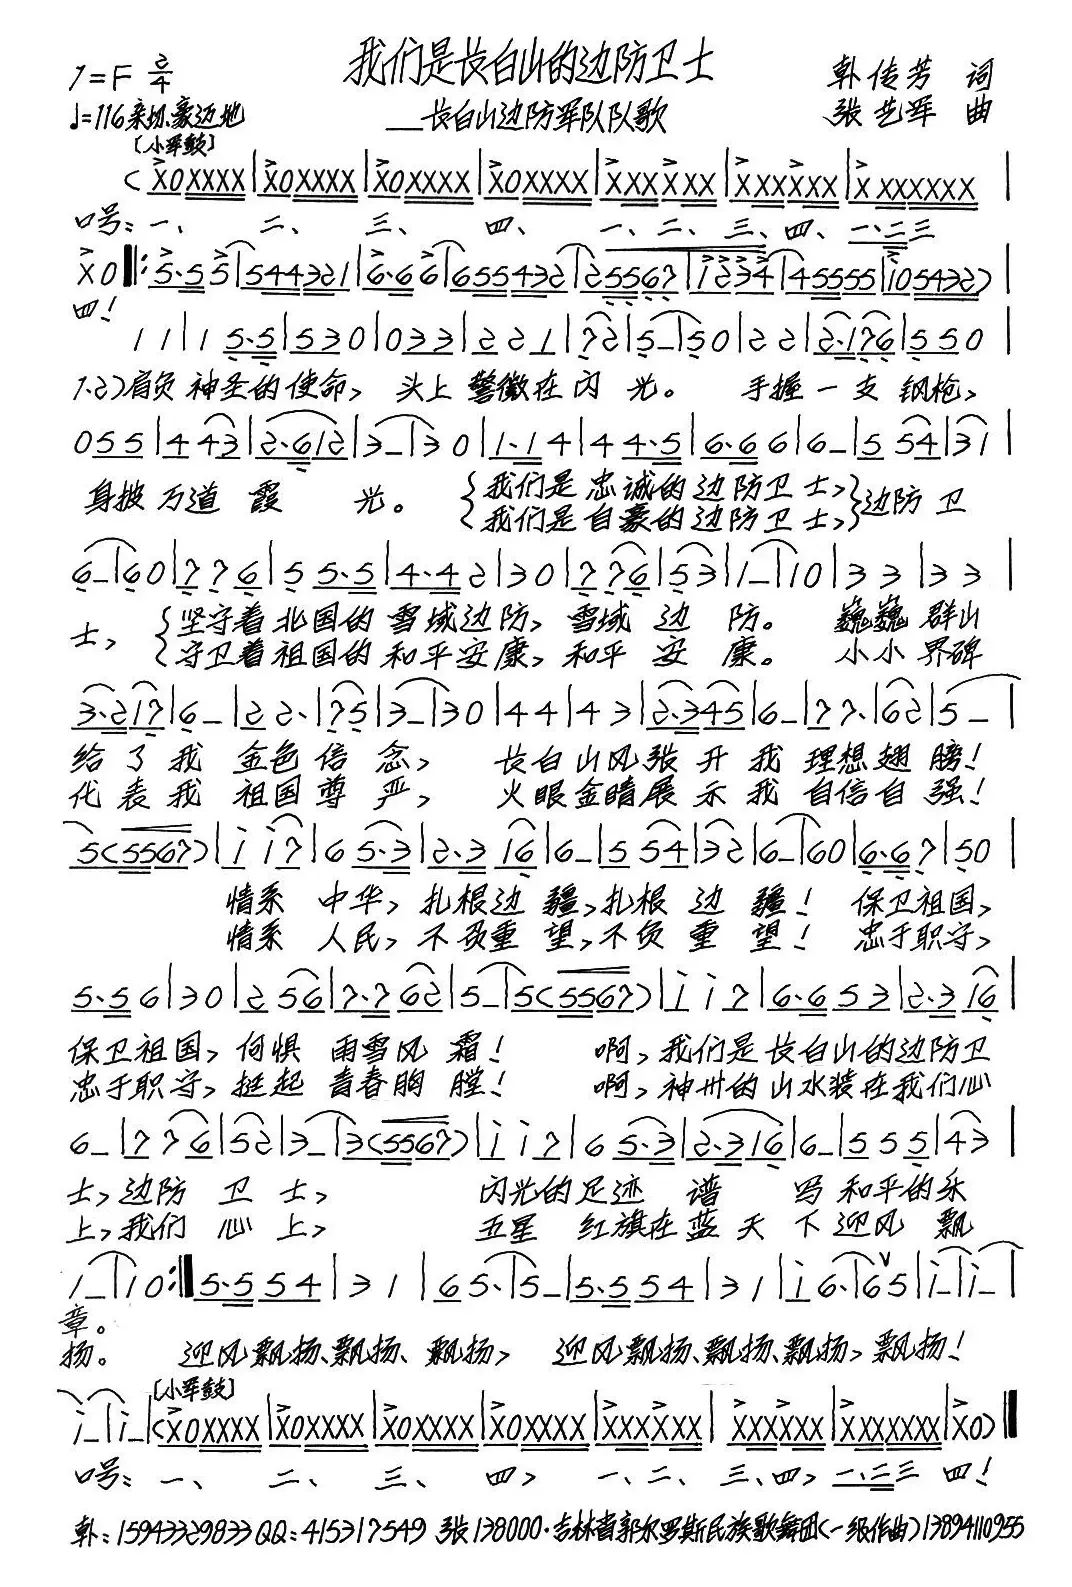 我们是长白山的边防卫士
1=F 2/4
韩传芳 词
♩=116 亲切、豪迈地
——长白山边防军队队歌
张艺军 曲
[小军鼓]
(X0XXXX|X0XXXX|X0XXXX|X0XXXX|XXXXXX|XXXXXX|XXXXXXX|
口号:一、 二、 三、 四、 一、二、三、四、一、二三
X0‖:5·55|544321|6·66|655432|25567|12234|45555|105432)
四!
11|15·5|530|033|221|72|5—|50|22|2·176|550|
1.2)肩负神圣的使命, 头上警徽在闪光。 手握一支钢枪,
055|443|2·612|3—|30|1·14|444·5|6·66|6—|554|31|
身披万道霞 光。 {我们是忠诚的边防卫士,}边防卫
{我们是自豪的边防卫士,}
6—|60|776|555·5|4·42|30|776|53|1—|10|33|33|
士, {坚守着北国的雪域边防,雪域边防。 巍巍群山
{守卫着祖国的和平安康,和平安康。 小小界碑
3·217|6—|22·|75|3—|30|44|43|2·345|6—|77·|62|5—|
给了我 金色信念, 长白山风张开我理想翅膀!
代表我 祖国尊严, 火眼金睛展示我自信自强!
5(5567)|i i7|65·3|2·316|6—|554|32|6—|60|6·67|50|
情系中华,扎根边疆,扎根边疆! 保卫祖国,
情系人民,不负重望,不负重望! 忠于职守,
5·56|30|256|7·762|5—|5(5567)|i i7|6·653|2·316|
保卫祖国,何惧雨雪风霜! 啊,我们是长白山的边防卫
忠于职守,挺起青春胸膛! 啊,神州的山水装在我们心
6—|776|52|3—|3(5567)|i i7|65·3|2·316|6—|555|43|
士,边防卫士, 闪光的足迹谱写和平的乐
上,我们心上, 五星红旗在蓝天下迎风飘
1—|10:‖5·554|31|65·|5—|5·554|31|i6·|65|i—|i—|
章。
扬。 迎风飘扬、飘扬、飘扬, 迎风飘扬、飘扬、飘扬,飘扬!
[小军鼓]
i—|i—|(X0XXXX|X0XXXX|X0XXXX|X0XXXX|XXXXXX|XXXXXX|XXXXXXX|X0)‖
口号:一、 二、 三、 四, 一、二、三、四,一、二三 四!
韩:15943329833 QQ:415317549 张138000·吉林省郭尔罗斯民族歌舞团(一级作曲)13894110955